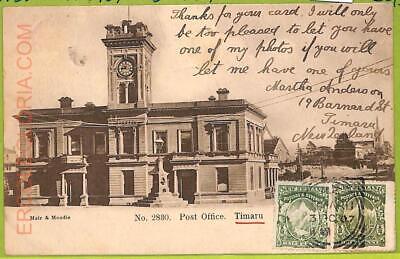 Thanks for your card, I will only
be too pleased to let you have
one of my photos if you will
let me have one of yours
Martha Anderson
19 Barnard St
Timaru
New Zealand
Muir & Moodie
No. 2830. Post Office. Timaru